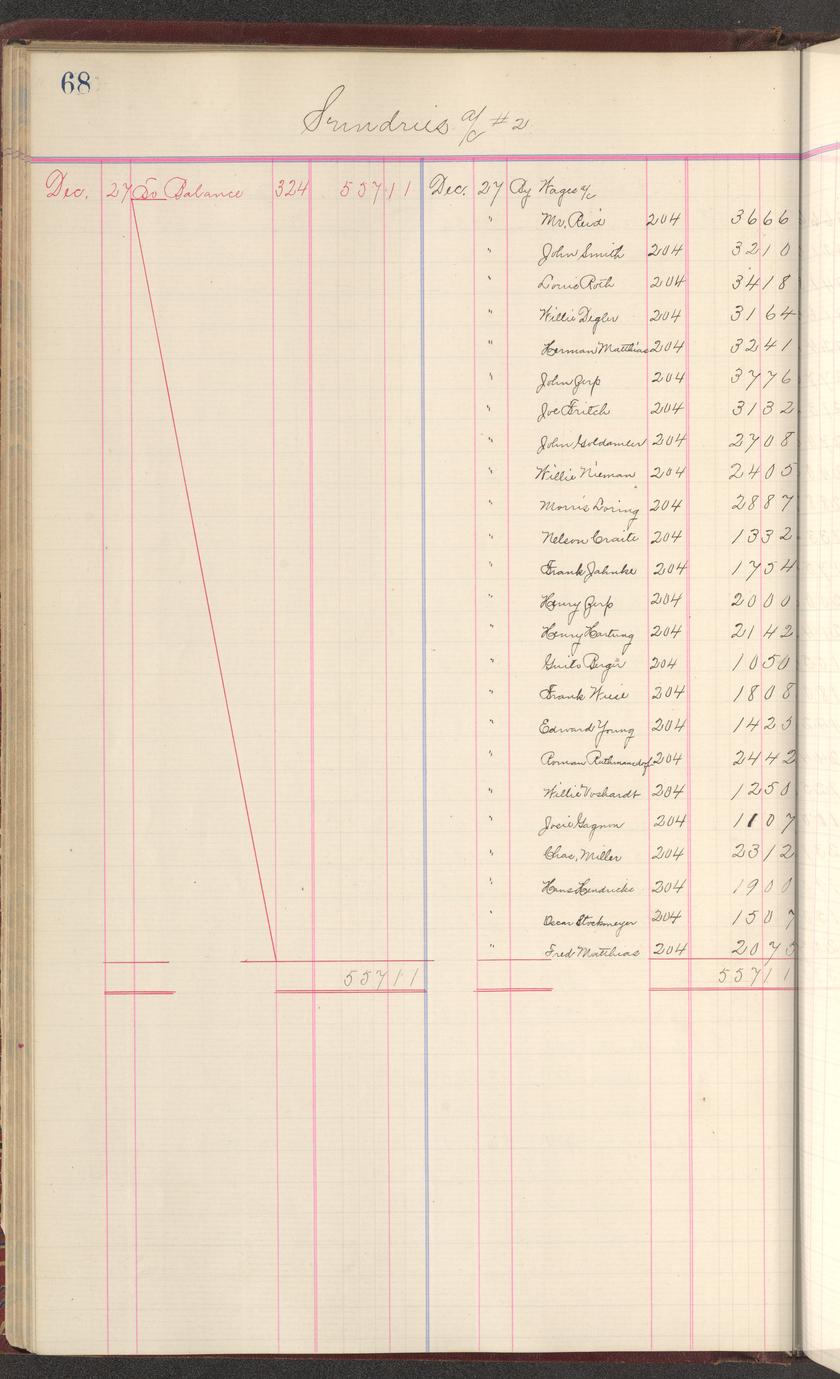 68
Sundries a/c #2
Dec. 27 To Balance 324 557 11
Dec. 27 By Wages a/c
" Mr. Reid 204 36 66
" John Smith 204 32 10
" Louie Roth 204 34 18
" Willie Degler 204 31 64
" Herman Matthias 204 32 41
" John Zerp 204 37 76
" Joe Fritch 204 31 32
" John Goldameer 204 27 08
" Willie Nieman 204 24 05
" Morris Loring 204 28 87
" Nelson Craite 204 13 32
" Frank Jahnke 204 17 54
" Henry Zerp 204 20 00
" Henry Hartung 204 21 42
" Guito Berger 204 10 50
" Frank Wiese 204 18 08
" Edward Young 204 14 25
" Roman 204 24 42
" Willie Voshardt 204 12 50
" Josie Gagnon 204 11 07
" Chas. Miller 204 23 12
" Hans Hendricks 204 19 00
" Oscar Stockmeyer 204 15 07
" Fred Matthias 204 20 75
557 11
557 11